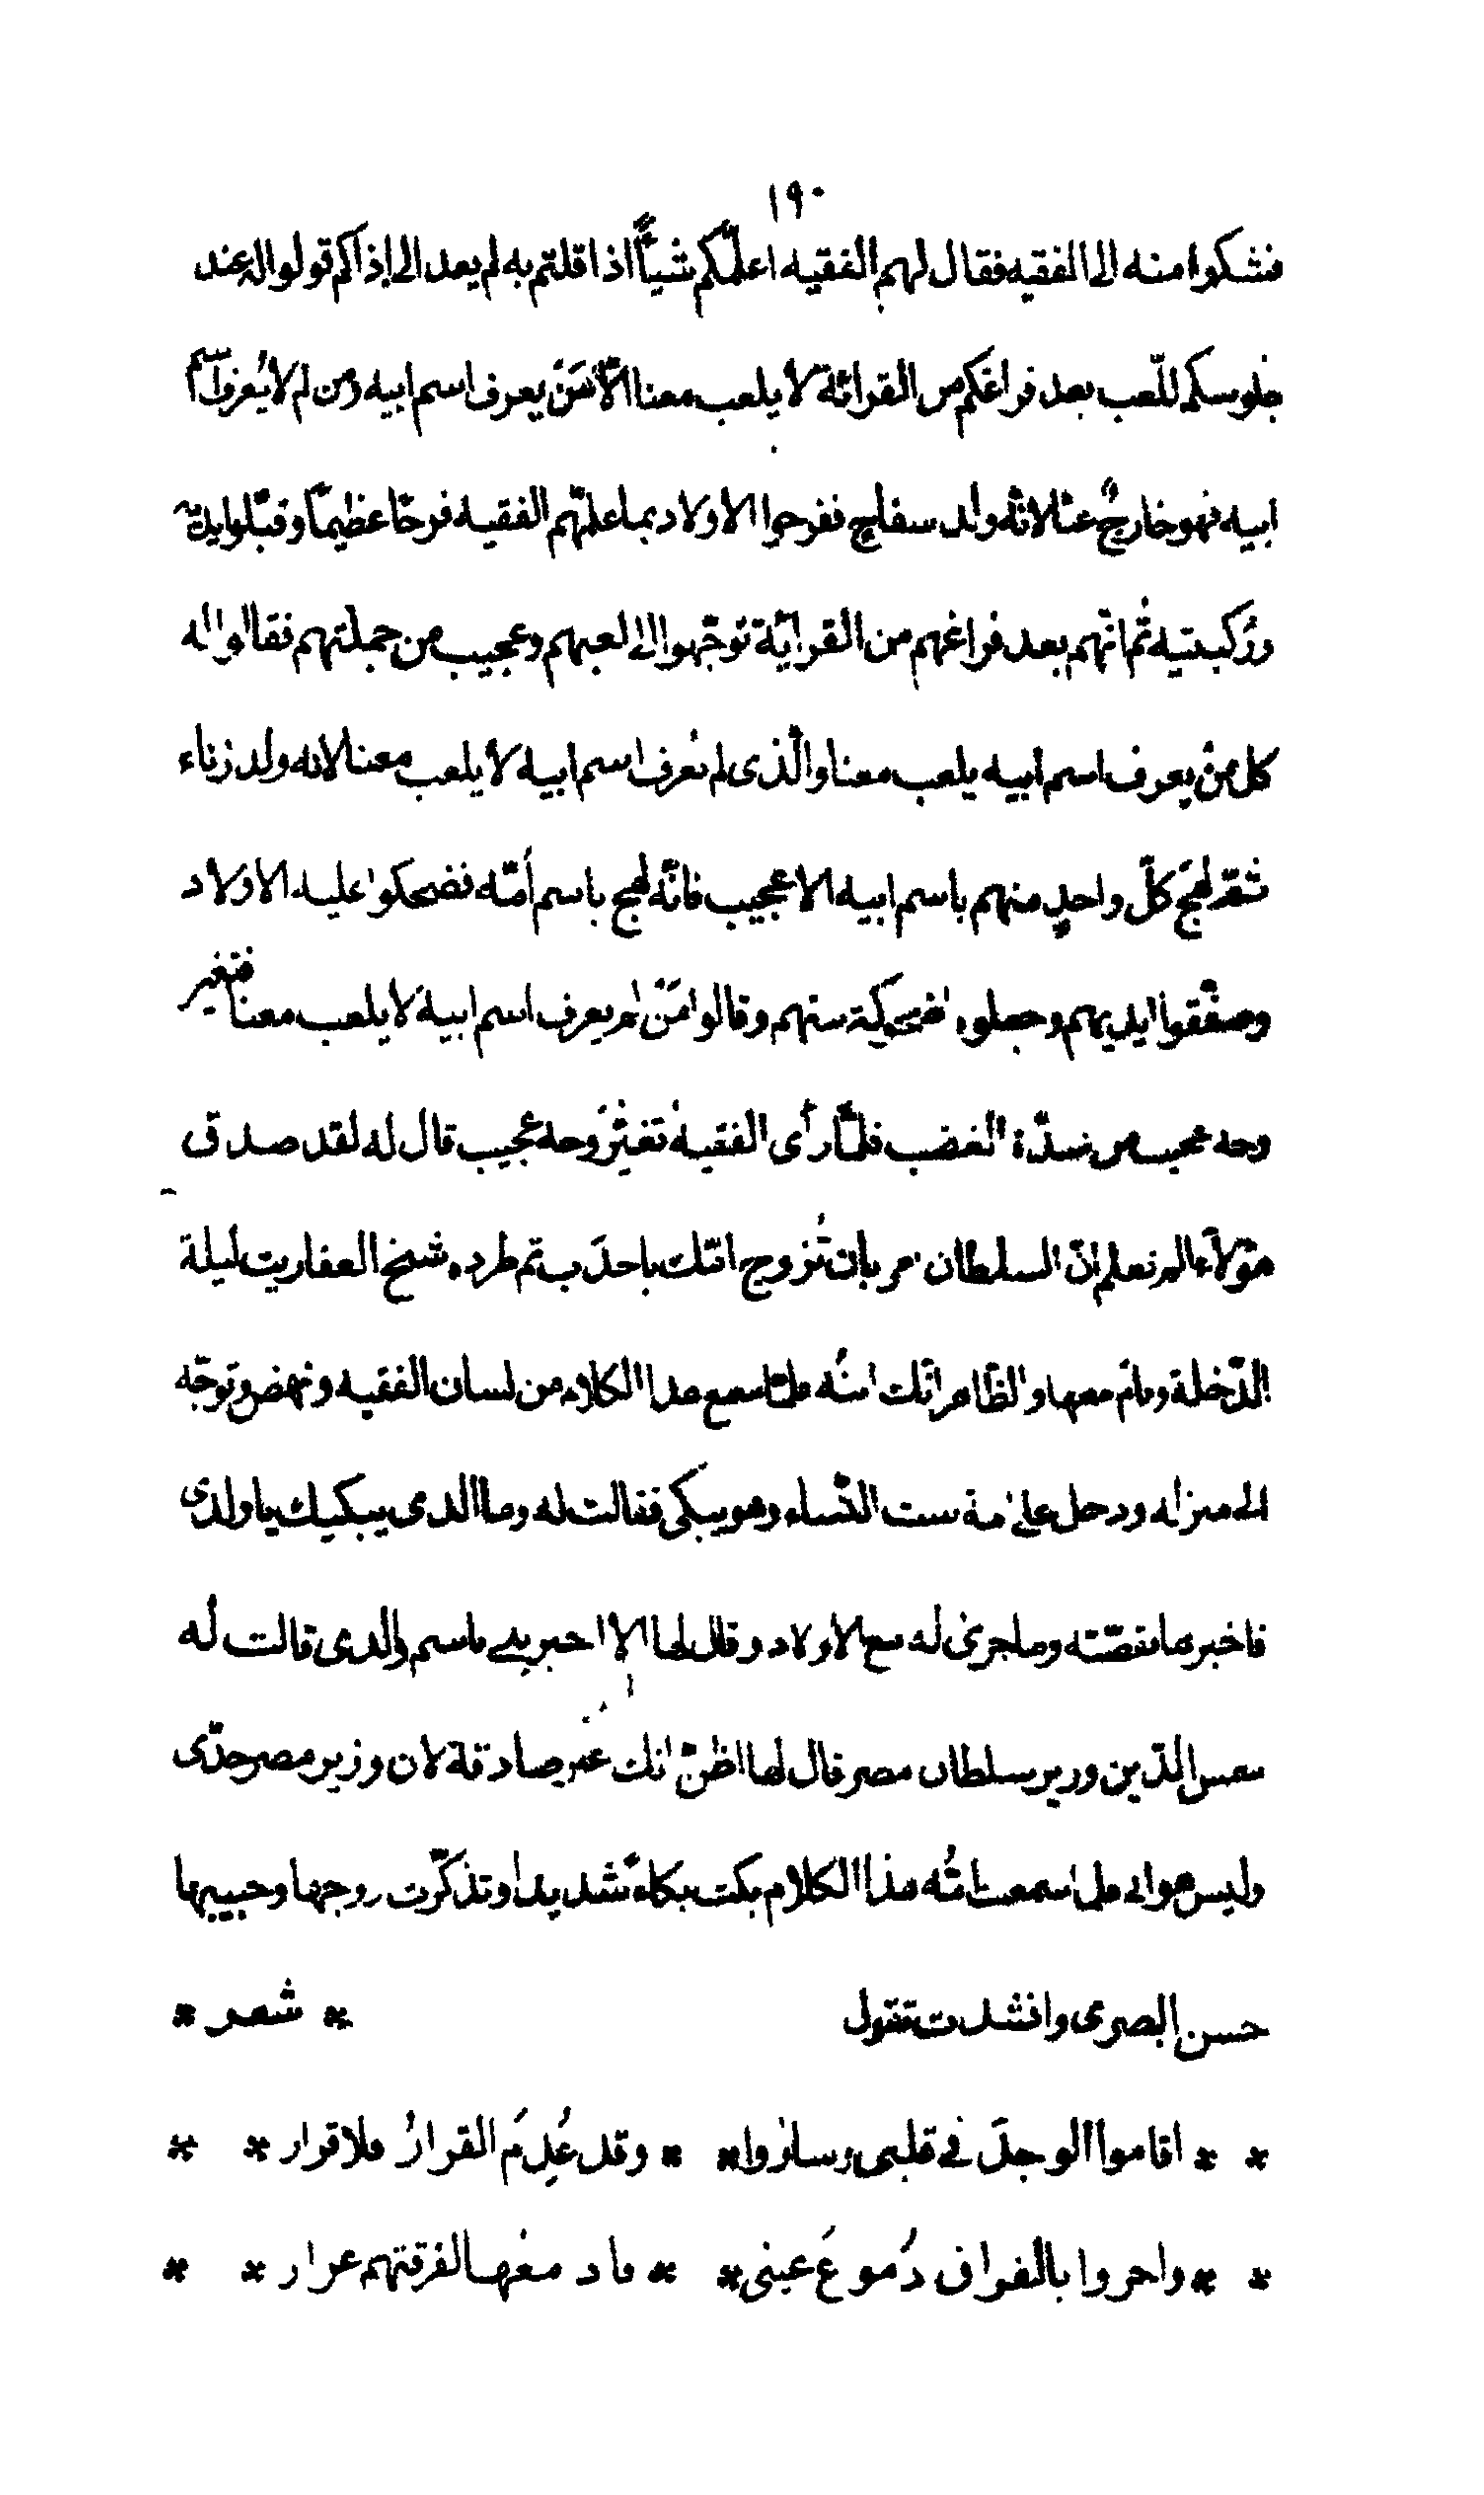 ١٩٠
فشكوا منه الى الفقيه فقال لهم الفقيه اعلّمكم شيأً اذا قلتم به لم يعد الى اذاكم قولوا له عند
جلوسكم للّعب بعد فراغكم من القرائة لا يلعب معنا الّا مَنْ يعرف اسم ابيه ومن لم لا يعرف اسم
ابيه فهو خارجٌ عنّا لانّه ولد سفاح ففرحوا الاولاد بما علمّهم الفقيه فرحًا عظيمًا وقبّلوا يديه
وركبتيه ثم انّهم بعد فراغهم من القرائة توجّهوا الى لعبهم وعجيب من جملتهم فقالوا له
كل من يعرف اسم ابيه يلعب معنا والّذى لم يعرف اسم ابيه لا يلعب معنا لانه ولد زناء
كلّ واحدٍ منهم باسم ابيه الا عجيب فانّه باسم أمّه فضحكوا عليه الاولاد
وصفّقوا ايديهم وجعلوه منهم وقالوا مَنْ لم يعرف اسم ابيه لا يلعب معنا فتغير
وجه عجيب من شدّة الغضب فلمّا رأى الفقيه تغيّر وجه عجيب قال له لقد صدق
هؤلاء الم تعلم انّ السلطان امر بان تُزوج امّك باحدب ثم طرده شيخ العفاريت ليلة
الدّخلة ونام معها والظّاهر انّك ابنُه فلمّا سمع هذا الكلام من لسان الفقيه ونهض وتوجّه
الى منزله ودخل على امّه ست النّساء وهو يبكى فقالت له وما الذى يبكيك يا ولدى
فاخبرها بقصّته وما جرى له مع الاولاد وقال لها الا اخبرينى باسم والدى قالت له
شمس الدّين وزير سلطان مصر فقال لها اظنّ انك غير صادقة لان وزير مصر جدّى
وليس هو ابى فلمّا سمعت امّه هذا الكلام بكت بكاء شديدا وتذكّرت زوجها وحبيبها
حسن البصرى وانشدت تقول * شعر *
* * اقاموا الوجدَ فى قلبى وساروا * * وقد عُدِمَ القرارُ فلا قرار * *
* * واجروا بالفراق دُموعَ عينى * * لفرقتهم * *